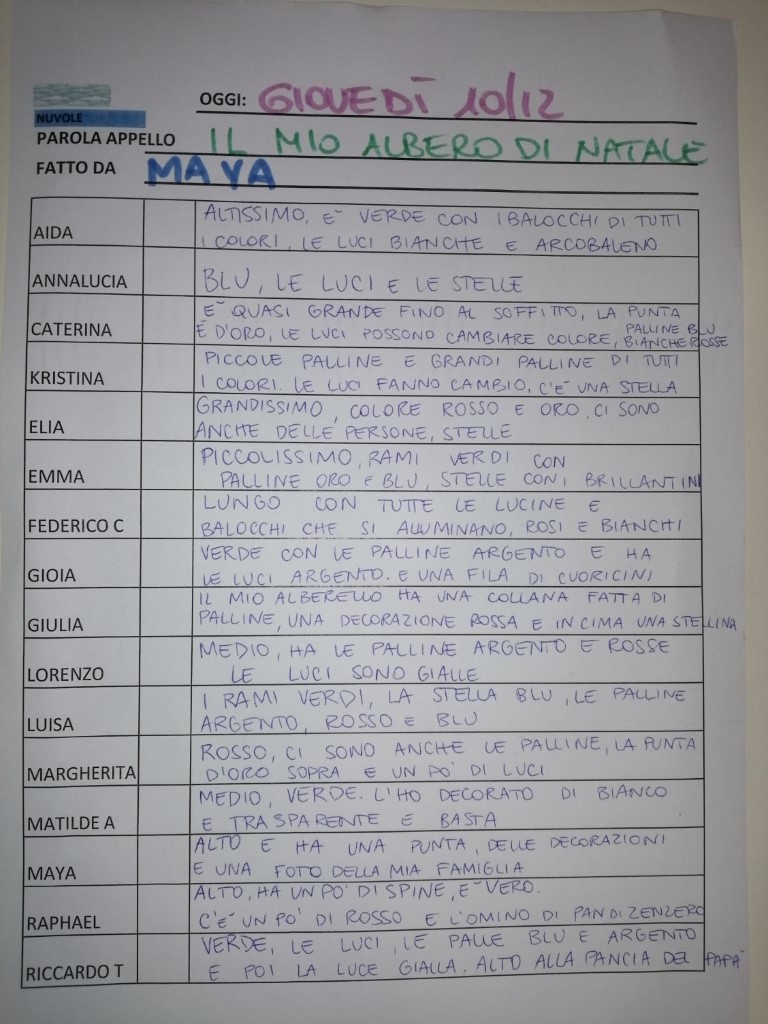 OGGI: GIOVEDÌ 10/12
NUVOLE
PAROLA APPELLO IL MIO ALBERO DI NATALE
FATTO DA MAYA
AIDA ALTISSIMO, E' VERDE CON I BALOCCHI DI TUTTI
I COLORI, LE LUCI BIANCHE E ARCOBALENO
ANNALUCIA BLU, LE LUCI E LE STELLE
CATERINA E' QUASI GRANDE FINO AL SOFFITTO, LA PUNTA
È D'ORO, LE LUCI POSSONO CAMBIARE COLORE, PALLINE BLU
BIANCHE ROSSE
KRISTINA PICCOLE PALLINE E GRANDI PALLINE DI TUTTI
I COLORI. LE LUCI FANNO CAMBIO. C'E' UNA STELLA
ELIA GRANDISSIMO, COLORE ROSSO E ORO, CI SONO
ANCHE DELLE PERSONE, STELLE
EMMA PICCOLISSIMO, RAMI VERDI CON
PALLINE ORO E BLU, STELLE CON I BRILLANTINI
FEDERICO C LUNGO CON TUTTE LE LUCINE E
BALOCCHI CHE SI ALLUMINANO, ROSI E BIANCHI
GIOIA VERDE CON LE PALLINE ARGENTO E HA
LE LUCI ARGENTO. E UNA FILA DI CUORICINI
GIULIA IL MIO ALBERELLO HA UNA COLLANA FATTA DI
PALLINE, UNA DECORAZIONE ROSSA E IN CIMA UNA STELLINA
LORENZO MEDIO, HA LE PALLINE ARGENTO E ROSSE
LE LUCI SONO GIALLE
LUISA I RAMI VERDI, LA STELLA BLU, LE PALLINE
ARGENTO, ROSSO E BLU
MARGHERITA ROSSO, CI SONO ANCHE LE PALLINE, LA PUNTA
D'ORO SOPRA E UN PO' DI LUCI
MATILDE A MEDIO, VERDE. L'HO DECORATO DI BIANCO
E TRASPARENTE E BASTA
MAYA ALTO E HA UNA PUNTA, DELLE DECORAZIONI
E UNA FOTO DELLA MIA FAMIGLIA
RAPHAEL ALTO, HA UN PO' DI SPINE, E' VERO.
C'E' UN PO' DI ROSSO E L'OMINO DI PANDIZENZERO
RICCARDO T VERDE, LE LUCI, LE PALLE BLU E ARGENTO
E POI LA LUCE GIALLA. ALTO ALLA PANCIA DEL PAPA'